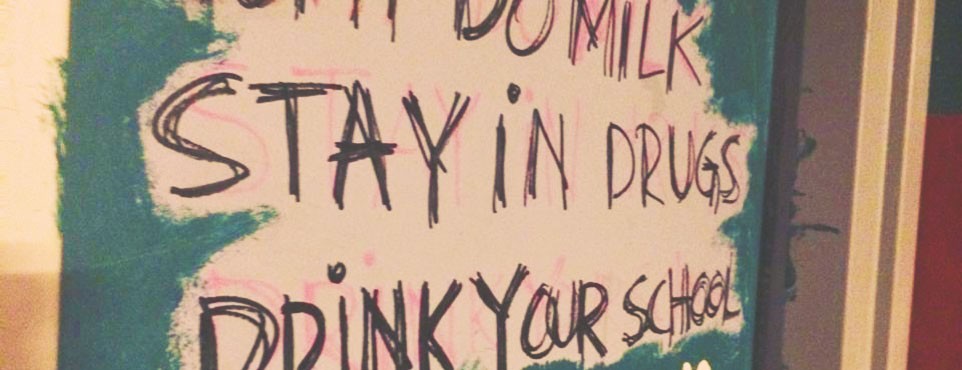 DO MILK
STAY iN DRUGS
DRiNK YOUR SCHOOL